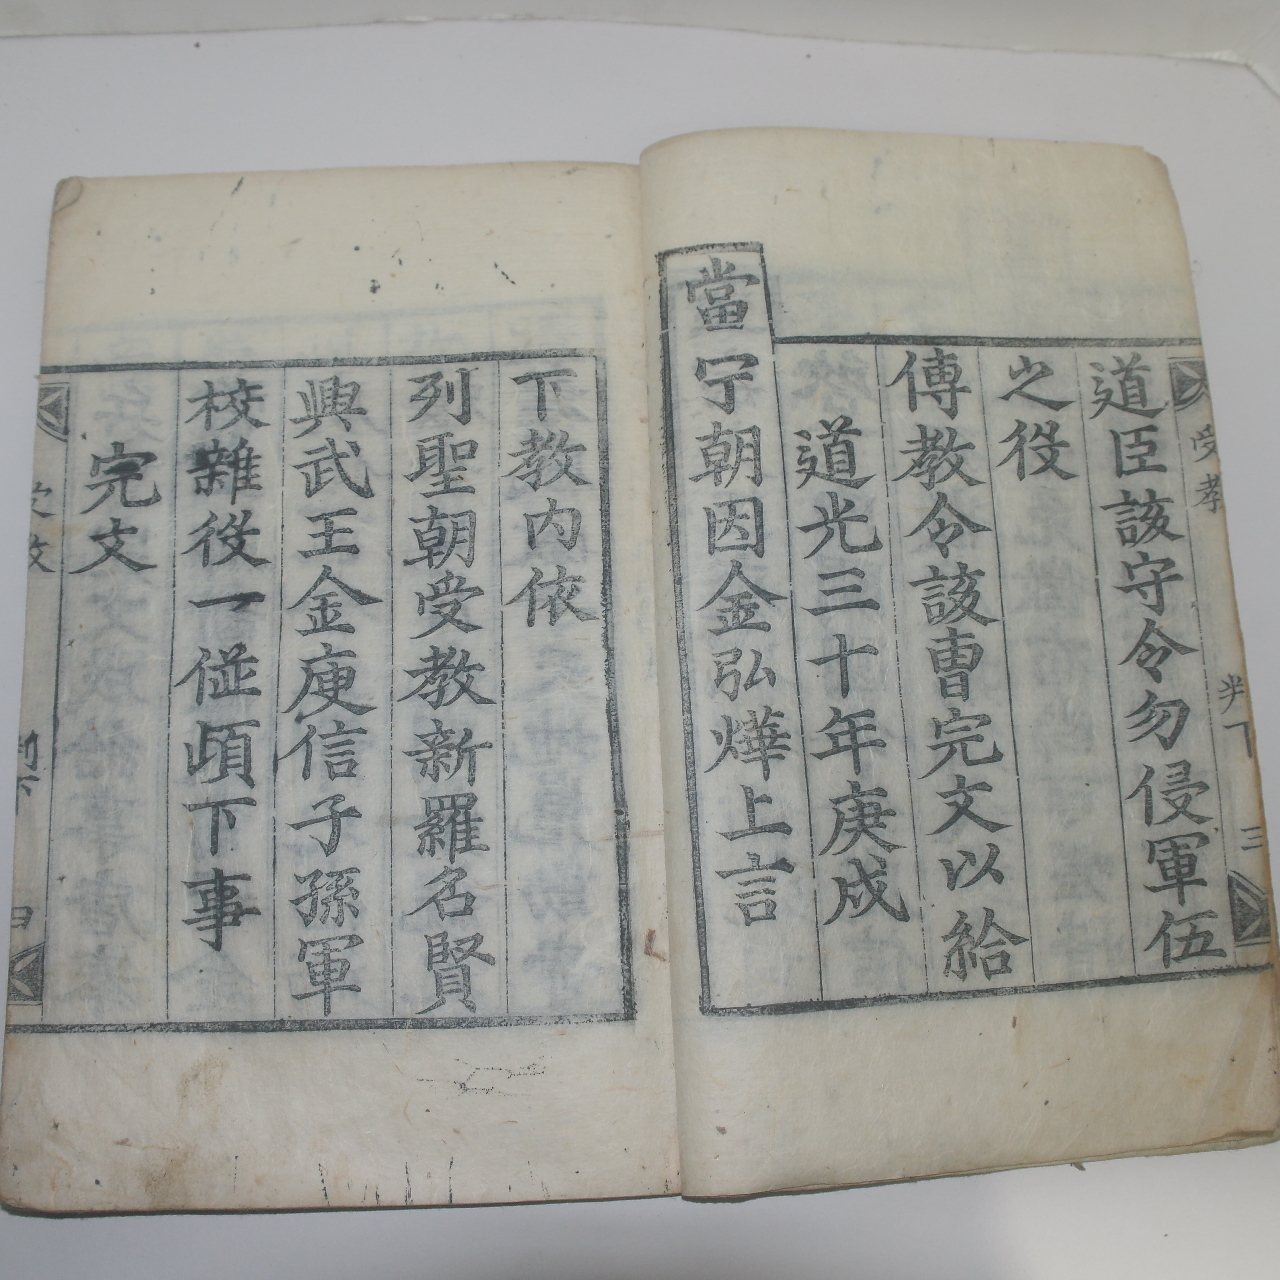 道臣該守令勿侵軍伍
之役
傳教令該曹完文以給
道光三十年庚戌
當宁朝因金弘燁上言
下教內依
列聖朝受教新羅名賢
興武王金庾信子孫軍
校雜役一倂頉下事
完文
受教
判下
三